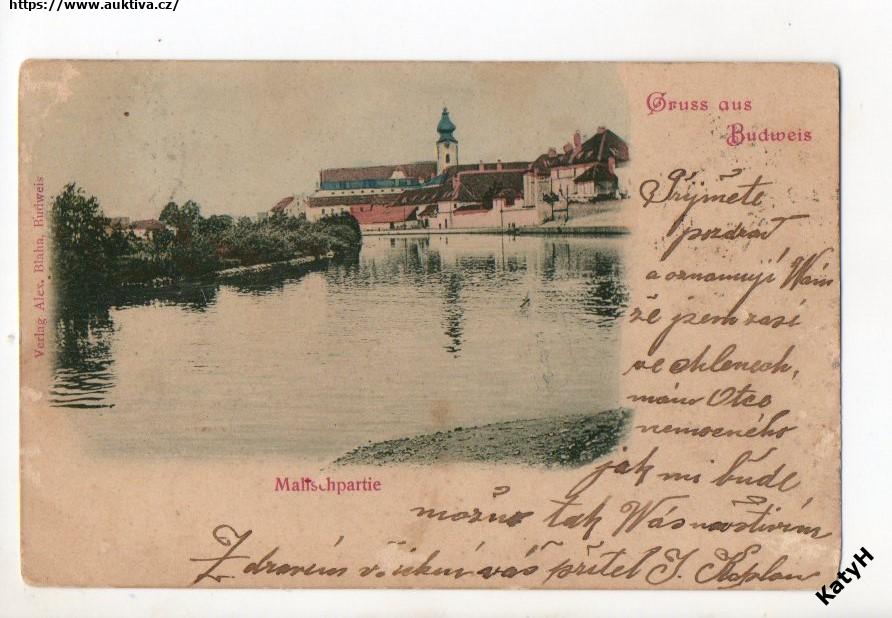 https://www.auktiva.cz/
Gruss aus
Budweis
Verlag Alex. Blaha, Budweis
Přijměte
pozdrav
a oznamuji Wám
že jsem zasi
ve
mám Otce
nemocného
jak mi bude
možno tak Wás navštivím
Zdravím všickni váš přítel J. Kaplan
Malschpartie
KatyH